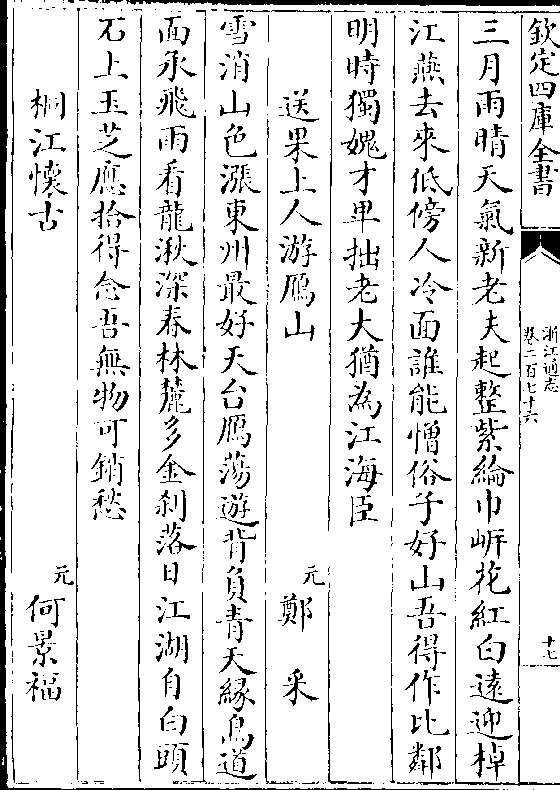 欽定四庫全書
浙江通志
卷二百七十六
十七
三月雨晴天氣新老夫起整紫綸巾㟁花紅白遠迎棹
江燕去來低傍人冷面誰能憎俗子好山吾得作比鄰
明時獨媿才卑拙老大猶為江海臣
送果上人游鴈山
元
鄭采
雪消山色漲東州最好天台鴈蕩遊背負青天緣鳥道
面承飛雨看龍湫深春林麓多金刹落日江湖自白頭
石上玉芝應拾得念吾無物可銷愁
桐江懷古
元
何景福